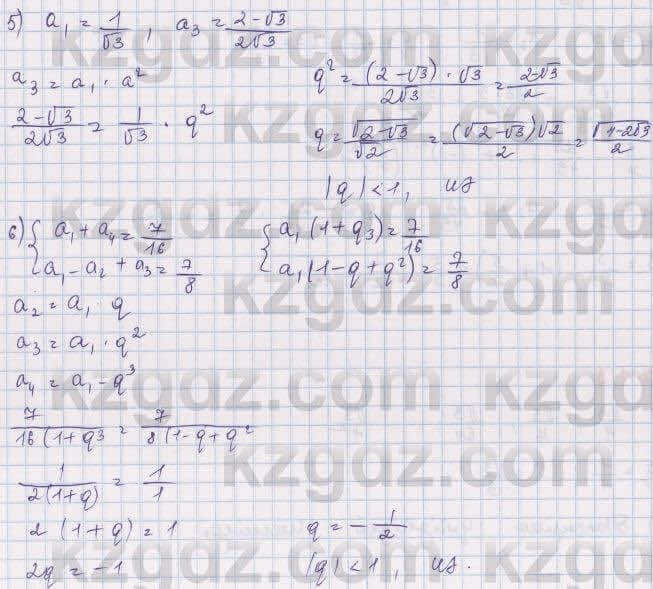 5) a₁ = 1/√3 , a₃ = (2-√3)/(2√3)
a₃ = a₁ · a²
(2-√3)/(2√3) = 1/√3 · q²
q² = ((2-√3)·√3)/(2√3) = (2-√3)/2
q = √(2-√3)/√2 = ((√2-√3)√2)/2 = √(4-2√3)/2
|q| < 1, из
6) { a₁ + a₄ = 7/16
{ a₁ - a₂ + a₃ = 7/8
{ a₁ (1 + q3) = 7/16
{ a₁ (1 - q + q²) = 7/8
a₂ = a₁ · q
a₃ = a₁ · q²
a₄ = a₁ - q³
7/(16(1+q3 = 7/(8(1-q+q²
1/(2(1+q)) = 1/1
2 (1+q) = 1
2q = -1
q = -1/2
|q| < 1, из.
kzgdz.com